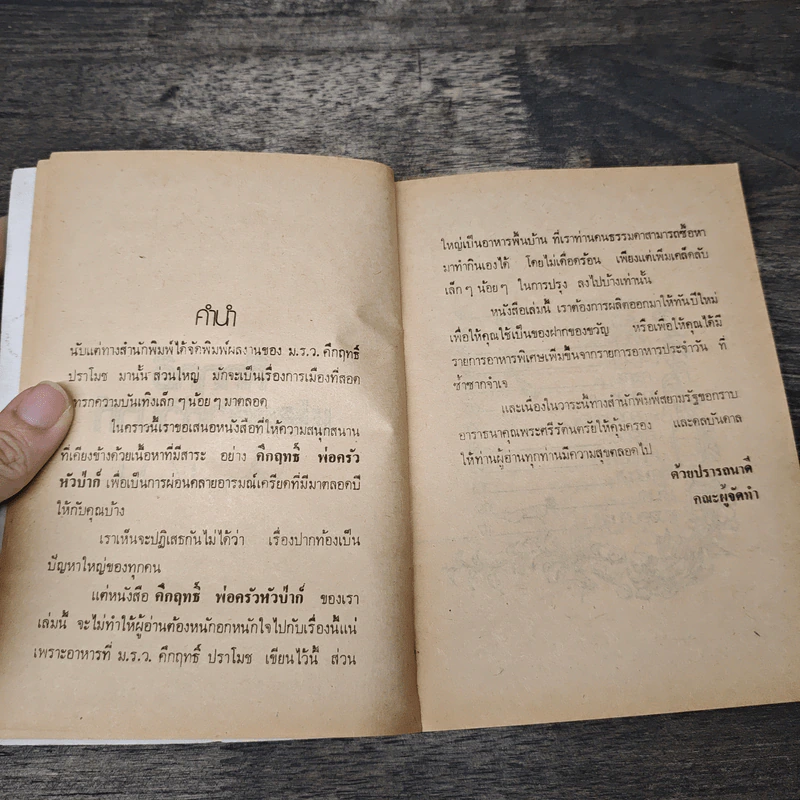 คำนำ
นับแต่ทางสำนักพิมพ์ได้จัดพิมพ์ผลงานของ ม.ร.ว. คึกฤทธิ์
ปราโมช มานั้น ส่วนใหญ่ มักจะเป็นเรื่องการเมืองที่สอด
แทรกความบันเทิงเล็ก ๆ น้อย ๆ มาตลอด
ในคราวนี้เราขอเสนอหนังสือที่ให้ความสนุกสนาน
ที่เคียงข้างด้วยเนื้อหาที่มีสาระ อย่าง คึกฤทธิ์ พ่อครัว
หัวป่าก์ เพื่อเป็นการผ่อนคลายอารมณ์เครียดที่มีมาตลอดปี
ให้กับคุณบ้าง
เราเห็นจะปฏิเสธกันไม่ได้ว่า เรื่องปากท้องเป็น
ปัญหาใหญ่ของทุกคน
แต่หนังสือ คึกฤทธิ์ พ่อครัวหัวป่าก์ ของเรา
เล่มนี้ จะไม่ทำให้ผู้อ่านต้องหนักอกหนักใจไปกับเรื่องนี้แน่
เพราะอาหารที่ ม.ร.ว. คึกฤทธิ์ ปราโมช เขียนไว้นี้ ส่วน
ใหญ่เป็นอาหารพื้นบ้าน ที่เราท่านคนธรรมดาสามารถซื้อหา
มาทำกินเองได้ โดยไม่เดือดร้อน เพียงแต่เพิ่มเคล็ดลับ
เล็ก ๆ น้อย ๆ ในการปรุง ลงไปบ้างเท่านั้น
หนังสือเล่มนี้ เราต้องการผลิตออกมาให้ทันปีใหม่
เพื่อให้คุณใช้เป็นของฝากของขวัญ หรือเพื่อให้คุณได้มี
รายการอาหารพิเศษเพิ่มขึ้นจากรายการอาหารประจำวัน ที่
ซ้ำซากจำเจ
และเนื่องในวาระนี้ทางสำนักพิมพ์สยามรัฐขอกราบ
อาราธนาคุณพระศรีรัตนตรัยให้คุ้มครอง และดลบันดาล
ให้ท่านผู้อ่านทุกท่านมีความสุขตลอดไป
ด้วยปรารถนาดี
คณะผู้จัดทำ